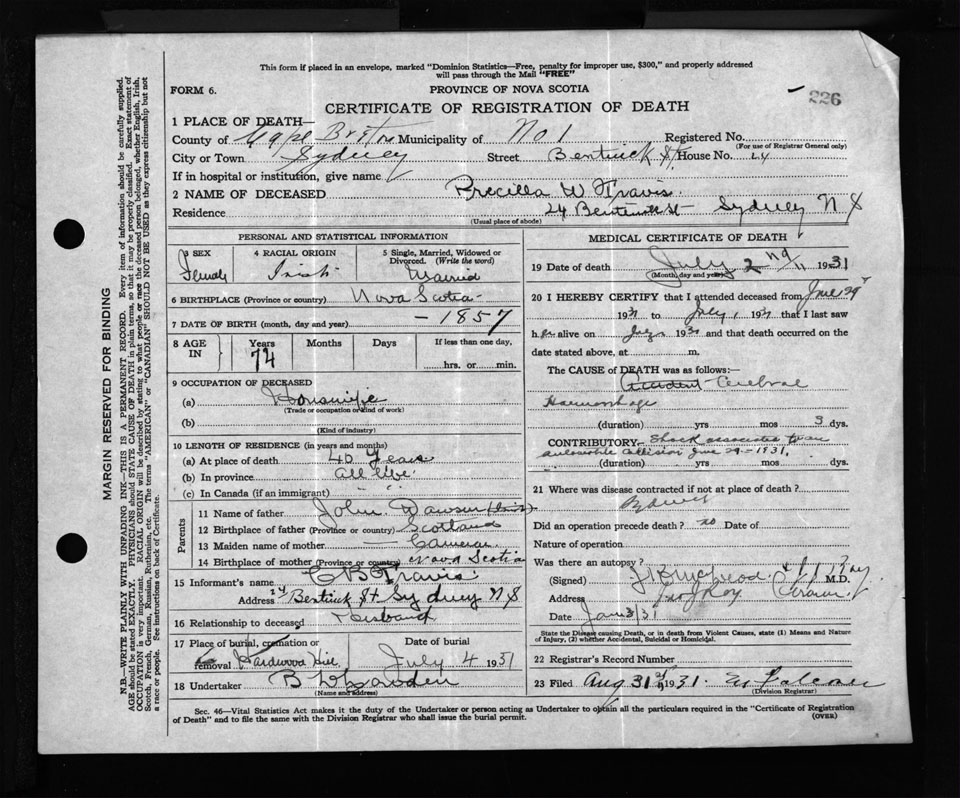 This form if placed in an envelope, marked "Dominion Statistics—Free, penalty for improper use, $300," and properly addressed
will pass through the Mail "FREE"
FORM 6.
PROVINCE OF NOVA SCOTIA
226
CERTIFICATE OF REGISTRATION OF DEATH
1 PLACE OF DEATH—
County of Cape Breton Municipality of No 1 Registered No.
(For use of Registrar General only)
City or Town Sydney Street Bentinck St. House No. 24
If in hospital or institution, give name
2 NAME OF DECEASED Precilla W. Travis.
Residence 24 Bentinck St Sydney N S
(Usual place of abode)
PERSONAL AND STATISTICAL INFORMATION
3 SEX 4 RACIAL ORIGIN 5 Single, Married, Widowed or
Divorced. (Write the word)
Female Irish Married
6 BIRTHPLACE (Province or country) Nova Scotia
7 DATE OF BIRTH (month, day and year) - 1857
8 AGE IN Years Months Days If less than one day,
74 hrs. or min.
9 OCCUPATION OF DECEASED
(a) Housewife
(Trade or occupation or kind of work)
(b)
(Kind of industry)
10 LENGTH OF RESIDENCE (in years and months)
(a) At place of death 40 Years
(b) In province All life
(c) In Canada (if an immigrant) " "
Parents
11 Name of father John Dawson
12 Birthplace of father (Province or country) Scotland
13 Maiden name of mother — Cameron
14 Birthplace of mother (Province or country) Nova Scotia
15 Informant's name C B Travis.
Address 24 Bentinck St Sydney N S
16 Relationship to deceased Husband
17 Place of burial, cremation or Date of burial
removal Hardwood Hill July 4 1931
18 Undertaker
(Name and address)
MEDICAL CERTIFICATE OF DEATH
19 Date of death July 2nd 1931
(Month, day and year)
20 I HEREBY CERTIFY that I attended deceased from June 29
1931 to July 1, 1931 that I last saw
her alive on July 1931 and that death occurred on
date stated above, at m.
The CAUSE of DEATH was as follows:—
Accident Cerebral
Haemorrhage
(duration) yrs mos 3 dys.
CONTRIBUTORY. Shock associated
automobile collision June 29—1931.
(duration) yrs. mos dys.
21 Where was disease contracted if not at place of death?
Sydney
Did an operation precede death? no Date of
Nature of operation
Was there an autopsy?
(Signed) M.D.
Address
Date
State the Disease causing Death, or in death from Violent Causes, state (1) Means and Nature
of Injury, (2) whether Accidental, Suicidal or Homicidal.
22 Registrar's Record Number
23 Filed Aug 31st 1931.
(Division Registrar)
Sec. 46—Vital Statistics Act makes it the duty of the Undertaker or person acting as Undertaker to obtain all the particulars required in the "Certificate of Registration
of Death" and to file the same with the Division Registrar who shall issue the burial permit. (OVER)
MARGIN RESERVED FOR BINDING
N.B.—WRITE PLAINLY WITH UNFADING INK—THIS IS A PERMANENT RECORD. Every item of information should be carefully supplied.
AGE should be stated EXACTLY. PHYSICIANS should STATE CAUSE OF DEATH in plain terms, so that it may be properly classified. Exact statement of
OCCUPATION is very important. RACIAL ORIGIN will be described by stating to what people or race the deceased person belonged, whether English, Irish,
Scotch, French, German, Russian, Ruthenian, etc. The terms "AMERICAN" or "CANADIAN" SHOULD NOT BE USED as they express citizenship but not
a race or people. See instructions on back of Certificate.